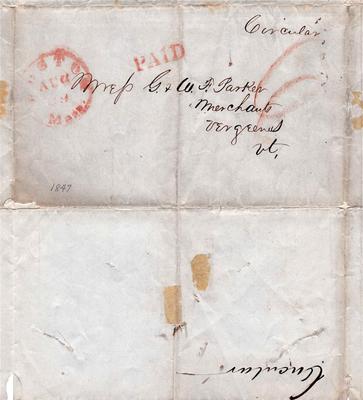 Circular
PAID
BOSTON
AUG
Mass.
Mess G. & W. P. Parker
Merchants
Vergennes
Vt.
1847
Circular